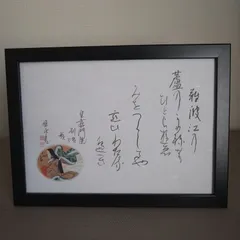 難波江の
蘆のかりねの
ひとよゆゑ
みをつくしてや
恋ひわたる
べき
皇嘉門院
別当